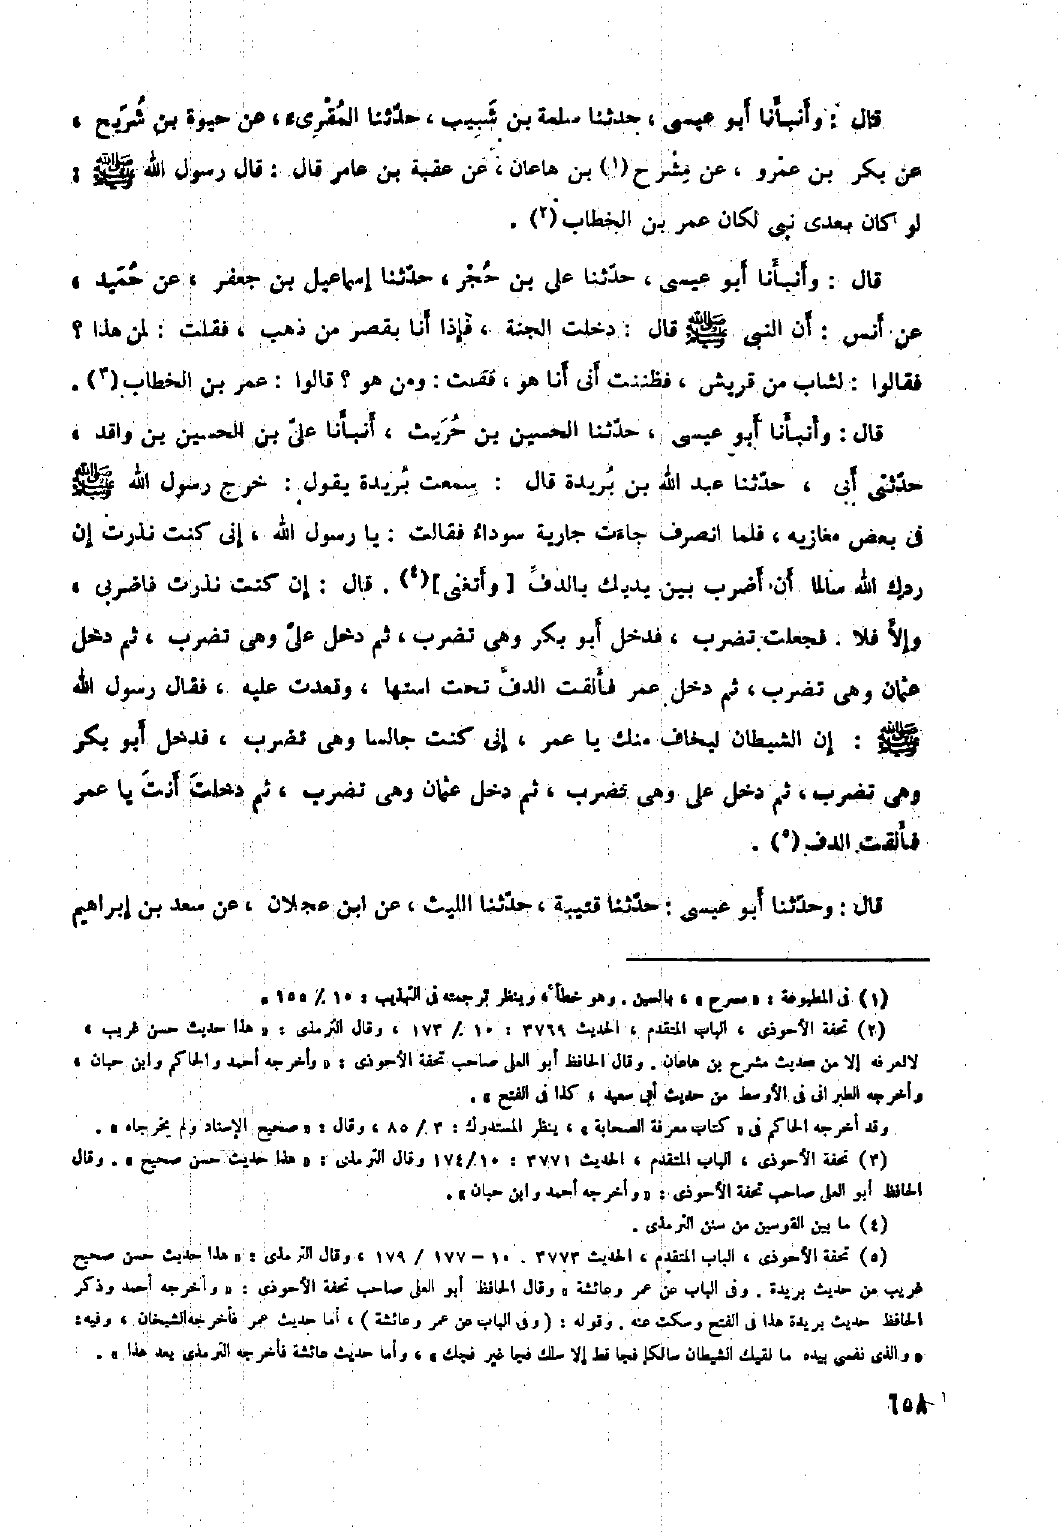 قال : وأنبأنا أبو عيسى ، حدثنا سلمة بن شَبِيب ، حدّثنا المُقْرىء ، عن حيوة بن شُرَيح ،
عن بكر بن عمْرو ، عن مِشْرح (١) بن هاعان ، عن عقبة بن عامر قال : قال رسول الله ﷺ :
لو كان بعدى نبي لكان عمر بن الخطاب (٢) .
قال : وأنبأنا أبو عيسى ، حدّثنا على بن حُجْر ، حدّثنا إسماعيل بن جعفر ، عن حُمَيد ،
عن أنس : أن النبى ﷺ قال : دخلت الجنة ، فإذا أنا بقصر من ذهب ، فقلت : لمن هذا ؟
فقالوا : لشاب من قريش ، فظننت أنى أنا هو ، فقلت : ومن هو ؟ قالوا : عمر بن الخطاب (٣) .
قال : وأنبأنا أبو عيسى ، حدّثنا الحسين بن حُرَيث ، أنبأنا علىّ بن الحسين بن واقد ،
حدّثنى أبى ، حدّثنا عبد الله بن بُريدة قال : سمعت بُريدة يقول : خرج رسول الله ﷺ
فى بعض مغازيه ، فلما انصرف جاءت جارية سوداءُ فقالت : يا رسول الله ، إنى كنت نذرت إن
ردك الله سالما أن أضرب بين يديك بالدفِّ [ وأتغنى ](٤) . قال : إن كنت نذرت فاضربى ،
وإلاَّ فلا . فجعلت تضرب ، فدخل أبو بكر وهى تضرب ، ثم دخل علىّ وهى تضرب ، ثم دخل
عثمان وهى تضرب ، ثم دخل عمر فألقت الدفَّ تحت استها ، وقعدت عليه ، فقال رسول الله
ﷺ : إن الشيطان ليخاف منك يا عمر ، إنى كنت جالسا وهى تضرب ، فدخل أبو بكر
وهى تضرب ، ثم دخل على وهى تضرب ، ثم دخل عثمان وهى تضرب ، ثم دخلتَ أنتَ يا عمر
فألقت الدف (٥) .
قال : وحدّثنا أبو عيسى : حدّثنا قتيبة ، حدّثنا الليث ، عن ابن عجلان ، عن سعد بن إبراهيم
(١) فى المطبوعة : « مسرح » ، بالسين . وهو خطأ ، وينظر ترجمته فى التهذيب : ١٠ / ١٥٥ .
(٢) تحفة الأحوذى ، الباب المتقدم ، الحديث ٣٧٦٩ : ١٠ / ١٧٣ ، وقال الترمذى : « هذا حديث حسن غريب ،
لا نعرفه إلا من حديث مشرح بن هاعان . وقال الحافظ أبو العلى صاحب تحفة الأحوذى : « وأخرجه أحمد والحاكم وابن حبان ،
وأخرجه الطبرانى فى الأوسط من حديث أبى سعيد ، كذا فى الفتح » .
وقد أخرجه الحاكم فى « كتاب معرفة الصحابة » ، ينظر المستدرك : ٣ / ٨٥ ، وقال : « صحيح الإسناد ولم يخرجاه » .
(٣) تحفة الأحوذى ، الباب المتقدم ، الحديث ٣٧٧١ : ١٧٤/١٠ وقال الترمذى : « هذا حديث حسن صحيح » . وقال
الحافظ أبو العلى صاحب تحفة الأحوذى : « وأخرجه أحمد وابن حبان » .
(٤) ما بين القوسين من سنن الترمذى .
(٥) تحفة الأحوذى ، الباب المتقدم ، الحديث ٣٧٧٣ . ١٠ – ١٧٧ / ١٧٩ ، وقال الترمذى : « هذا حديث حسن صحيح
غريب من حديث بريدة . وفى الباب عن عمر وعائشة » وقال الحافظ أبو العلى صاحب تحفة الأحوذى : « وأخرجه أحمد وذكر
الحافظ حديث بريدة هذا فى الفتح وسكت عنه . وقوله : ( وفى الباب عن عمر وعائشة ) ، أما حديث عمر فأخرجه الشيخان ، وفيه :
« والذى نفسى بيده ما لقيك الشيطان سالكا فجا قط إلا سلك فجا غير فجك » ، وأما حديث عائشة فأخرجه الترمذى بعد هذا » .
٦٥٨